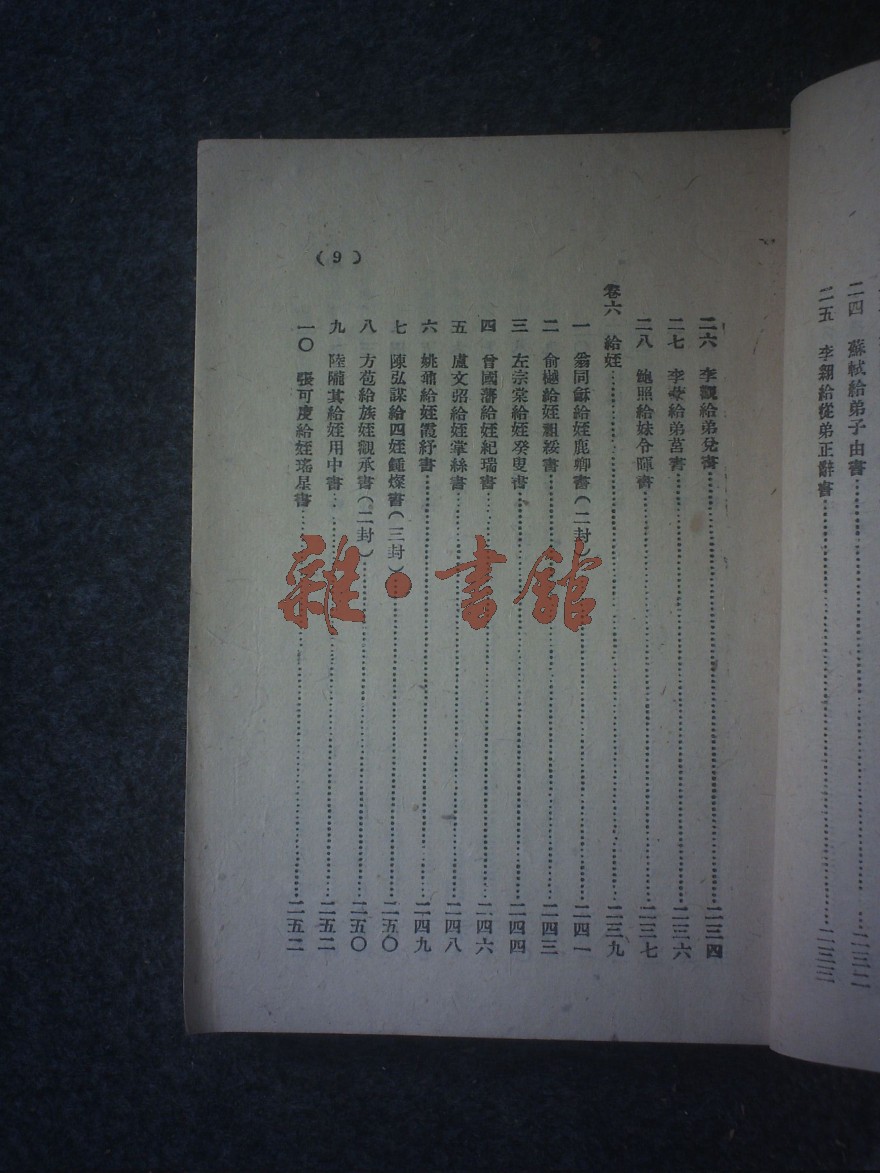 二四 蘇軾給弟子由書……二三二
二五 李翱給從弟正辭書……二三三
二六 李觀給弟兌書……二三四
二七 李華給弟莒書……二三六
二八 鮑照給妹令暉書……二三七
卷六 給姪……二三九
一 翁同龢給姪鹿卿書(二封)……二四一
二 俞樾給姪祖綏書……二四三
三 左宗棠給姪癸叟書……二四四
四 曾國藩給姪紀瑞書……二四六
五 盧文弨給姪掌絲書……二四八
六 姚鼐給姪霞紓書……二四九
七 陳弘謀給四姪鍾燦書(三封)……二五〇
八 方苞給族姪觀承書(二封)……二五〇
九 陸隴其給姪用中書……二五二
一〇 張可度給姪瑤星書……二五二
(9)
雜·書館